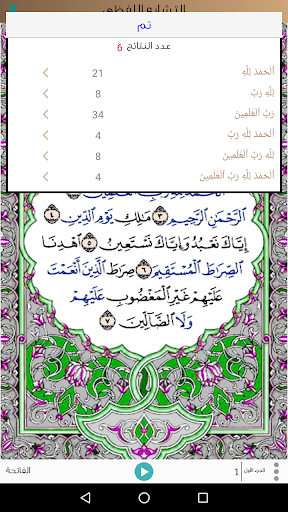 التشابه اللفظي
تم
عدد النتائج 6
الحمد لله 21
لله رب 8
رب العلمين 34
الحمد لله رب 4
لله رب العلمين 8
الحمد لله رب العلمين 4
الرَّحْمَٰنِ الرَّحِيمِ ٣ مَٰلِكِ يَوْمِ الدِّينِ ٤
إِيَّاكَ نَعْبُدُ وَإِيَّاكَ نَسْتَعِينُ ٥ اهْدِنَا
الصِّرَٰطَ الْمُسْتَقِيمَ ٦ صِرَٰطَ الَّذِينَ أَنْعَمْتَ
عَلَيْهِمْ غَيْرِ الْمَغْضُوبِ عَلَيْهِمْ
وَلَا الضَّالِّينَ ٧
الفاتحة 1 الجزء الأول